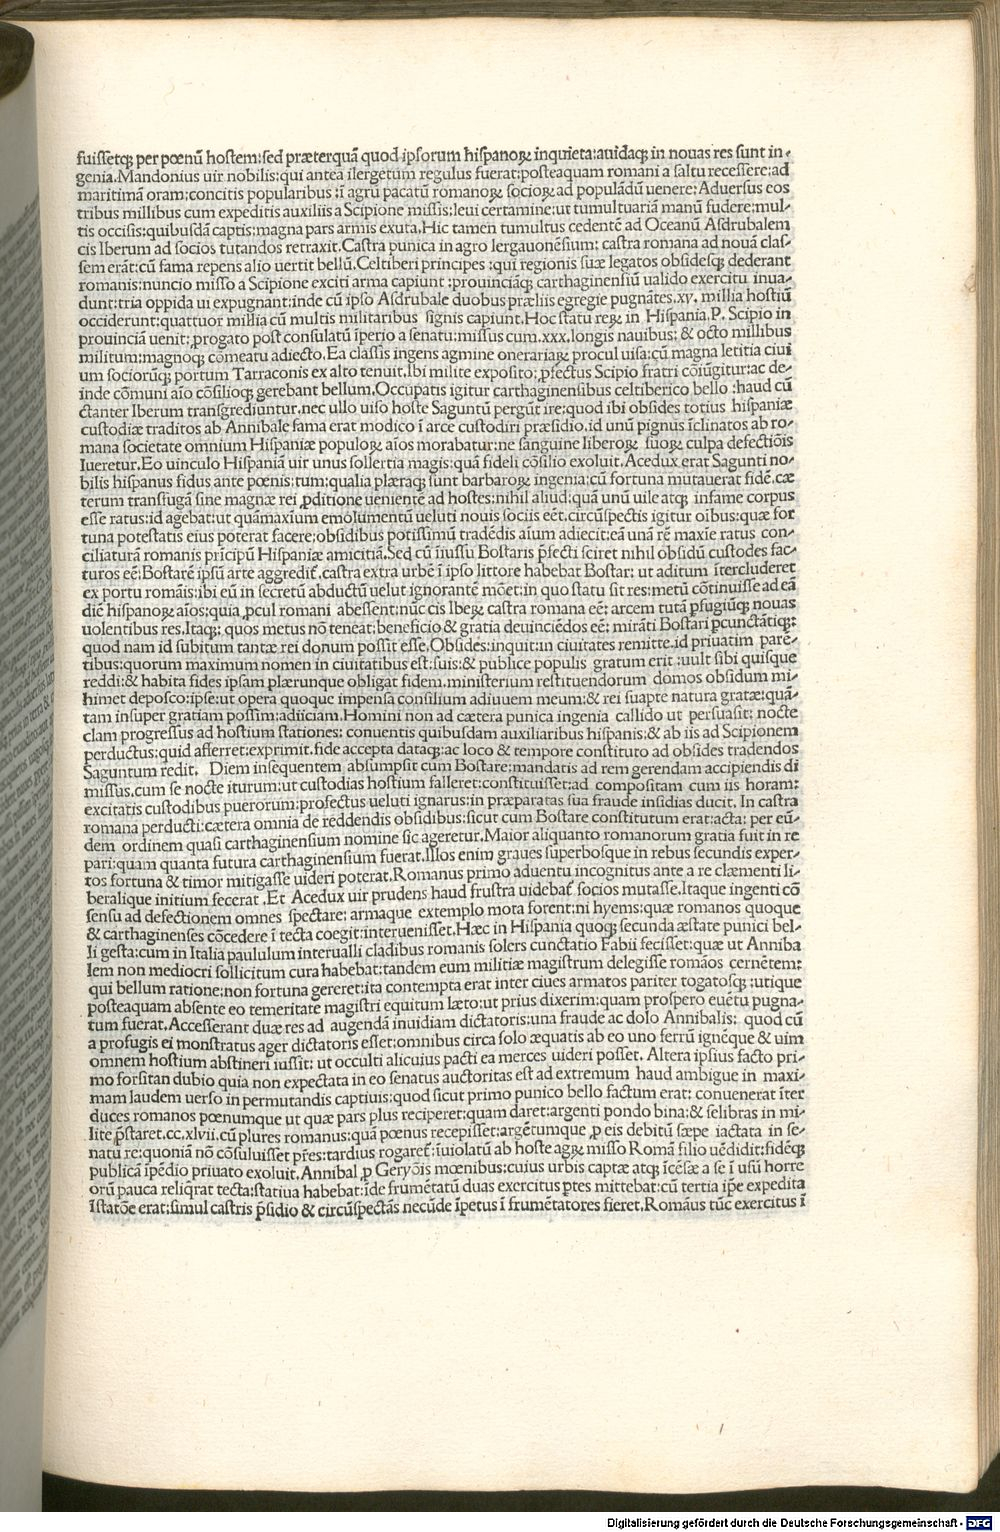 fuiſſetqꝫ per pœnū hoſtem:ſed præterquā quod ipſorum hiſpanoꝝ inquieta:auidaqꝫ in nouas res ſunt in-
genia.Mandonius uir nobilis:qui antea ilergetum regulus fuerat:poſteaquam romani a ſaltu receſſere:ad
maritimā oram:concitis popularibus :ī agrū pacatū romanoꝝ ſocioꝝ ad populādū uenere:Aduerſus eos
tribus millibus cum expeditis auxiliis a Scipione miſſis:leui certamine:ut tumultuariā manū fudere:mul-
tis occiſis:quibuſdā captis:magna pars armis exuta.Hic tamen tumultus cedentē ad Oceanū Aſdrubalem
cis Iberum ad ſocios tutandos retraxit.Caſtra punica in agro Iergauonēſium: caſtra romana ad nouā claſ-
ſem erāt:cū fama repens alio uertit bellū.Celtiberi principes :qui regionis ſuæ legatos obſideſqꝫ dederant
romanis:nuncio miſſo a Scipione exciti arma capiunt :prouinciāqꝫ carthaginenſiū ualido exercitu inua-
dunt:tria oppida ui expugnant:inde cū ipſo Aſdrubale duobus præliis egregie pugnātes.xv. millia hoſtiū
occiderunt:quattuor millia cū multis militaribus ſignis capiunt.Hoc ſtatu reꝝ in Hiſpania.P. Scipio in
prouinciā uenit: ꝓrogato poſt conſulatū īperio a ſenatu:miſſus cum.xxx.longis nauibus: & octo millibus
militum:magnoqꝫ cōmeatu adiecto.Ea claſſis ingens agmine onerariaꝝ procul uiſa:cū magna letitia ciui
um ſociorūqꝫ portum Tarraconis ex alto tenuit.Ibi milite expoſito:ꝓfectus Scipio fratri cōiūgitur:ac de-
inde cōmuni aīo cōſilioqꝫ gerebant bellum.Occupatis igitur carthaginenſibus celtiberico bello :haud cū
ctanter Iberum tranſgrediuntur.nec ullo uiſo hoſte Saguntū pergūt ire:quod ibi obſides totius hiſpaniæ
cuſtodiæ traditos ab Annibale fama erat modico ī arce cuſtodiri præſidio.id unū pignus īclinatos ab ro-
mana ſocietate omnium Hiſpaniæ populoꝝ aīos morabatur:ne ſanguine liberoꝝ ſuoꝝ culpa defectiōis
lueretur.Eo uinculo Hiſpaniā uir unus ſollertia magis:quā fideli cōſilio exoluit.Acedux erat Sagunti no-
bilis hiſpanus fidus ante pœnis:tum:qualia plæraqꝫ ſunt barbaroꝝ ingenia:cū fortuna mutauerat fidē.cæ
terum tranſfugā ſine magnæ rei ꝓditione uenientē ad hoſtes:nihil aliud:quā unū uile atqꝫ infame corpus
eſſe ratus:id agebat:ut quāmaxīum emolumentū ueluti nouis ſociis eēt.circūſpectis igitur oībus:quæ for
tuna poteſtatis eius poterat facere;obſidibus potiſſimū tradēdis aīum adiecit:eā unā rē maxīe ratus con-
ciliaturā romanis prīcipū Hiſpaniæ amicitiā.Sed cū īiuſſu Boſtaris p̄fecti ſciret nihil obſidū cuſtodes fac-
turos eē:Boſtarē ipſū arte aggredit̄.caſtra extra urbē ī ipſo littore habebat Boſtar: ut aditum ītercluderet
ex portu romāis:ibi eū in ſecretū abductū uelut ignorantē mōet:in quo ſtatu ſit res:metū cōtinuiſſe ad eā
diē hiſpanoꝝ aīos:quia ꝓcul romani abeſſent:nūc cis Ibeꝝ caſtra romana eē: arcem tutā ꝑfugiūqꝫ nouas
uolentibus res.Itaqꝫ: quos metus nō teneat:beneficio & gratia deuinciēdos eē: mirāti Boſtari ꝑcunctātiqꝫ:
quod nam id ſubitum tantæ rei donum poſſit eſſe.Obſides:inquit:in ciuitates remitte.id priuatim parē-
tibus:quorum maximum nomen in ciuitatibus eſt:ſuis:& publice populis gratum erit :uult ſibi quiſque
reddi:& habita fides ipſam plærunque obligat fidem.miniſterium reſtituendorum domos obſidum mi-
himet depoſco:ipſe:ut opera quoque impenſa conſilium adiuuem meum:& rei ſuapte natura gratæ:quā-
tam inſuper gratiam poſſim:adiiciam.Homini non ad cætera punica ingenia callido ut perſuaſit: nocte
clam progreſſus ad hoſtium ſtationes: conuentis quibuſdam auxiliaribus hiſpanis:& ab iis ad Scipionem
perductus:quid afferret:exprimit.fide accepta dataqꝫ:ac loco & tempore conſtituto ad obſides tradendos
Saguntum redit. Diem inſequentem abſumpſit cum Boſtare:mandatis ad rem gerendam accipiendis di
miſſus.cum ſe nocte iturum:ut cuſtodias hoſtium falleret:conſtituiſſet:ad compoſitam cum iis horam:
excitatis cuſtodibus puerorum:profectus ueluti ignarus:in præparatas ſua fraude inſidias ducit. In caſtra
romana perducti:cætera omnia de reddendis obſidibus:ſicut cum Boſtare conſtitutum erat:acta: per eū-
dem ordinem quaſi carthaginenſium nomine ſic ageretur.Maior aliquanto romanorum gratia fuit in re
pari:quam quanta futura carthaginenſium fuerat.Illos enim graues ſuperboſque in rebus ſecundis exper-
tos fortuna & timor mitigaſſe uideri poterat.Romanus primo aduentu incognitus ante a re clæmenti li-
beralique initium fecerat .Et Acedux uir prudens haud fruſtra uidebat̄ ſocios mutaſſe.Itaque ingenti cō
ſenſu ad defectionem omnes ſpectare: armaque extemplo mota forent:ni hyems:quæ romanos quoque
& carthaginenſes cōcedere ī tecta coegit:interueniſſet.Hæc in Hiſpania quoqꝫ ſecunda æſtate punici bel-
li geſta:cum in Italia paululum interualli cladibus romanis ſolers cunctatio Fabii feciſſet:quæ ut Anniba
lem non mediocri ſollicitum cura habebat:tandem eum militiæ magiſtrum delegiſſe romāos cernētem:
qui bellum ratione:non fortuna gereret:ita contempta erat inter ciues armatos pariter togatoſqꝫ :utique
poſteaquam abſente eo temeritate magiſtri equitum læto:ut prius dixerim:quam proſpero euētu pugna-
tum fuerat.Acceſſerant duæ res ad augendā inuidiam dictatoris:una fraude ac dolo Annibalis: quod cū
a profugis ei monſtratus ager dictatoris eſſet:omnibus circa ſolo æquatis ab eo uno ferrū ignēque & uim
omnem hoſtium abſtineri iuſſit: ut occulti alicuius pacti ea merces uideri poſſet. Altera ipſius facto pri-
mo forſitan dubio quia non expectata in eo ſenatus auctoritas eſt ad extremum haud ambigue in maxi-
mam laudem uerſo in permutandis captiuis:quod ſicut primo punico bello factum erat: conuenerat īter
duces romanos pœnumque ut quæ pars plus reciperet:quam daret:argenti pondo bina:& ſelibras in mi-
lite p̄ſtaret.cc.xlvii.cū plures romanus:quā pœnus recepiſſet:argētumque ꝓ eis debitū ſæpe iactata in ſe-
natu re:quoniā nō cōſuluiſſet pr̄es:tardius rogaret̄:īuiolatū ab hoſte agꝝ miſſo Romā filio uēdidit:fidēqꝫ
publicā īpēdio priuato exoluit.Annibal ꝓ Geryōis mœnibus:cuius urbis captæ atqꝫ īcēſæ a ſe ī uſū horre
orū pauca reliq̄rat tecta:ſtatiua habebat:īde frumētatū duas exercitus ꝑtes mittebat:cū tertia ip̄e expedita
īſtatōe erat:ſimul caſtris p̄ſidio & circūſpectās necūde īpetus ī frumētatores fieret.Romāus tūc exercitus ī
Digitalisierung gefördert durch die Deutsche Forschungsgemeinschaft - DFG